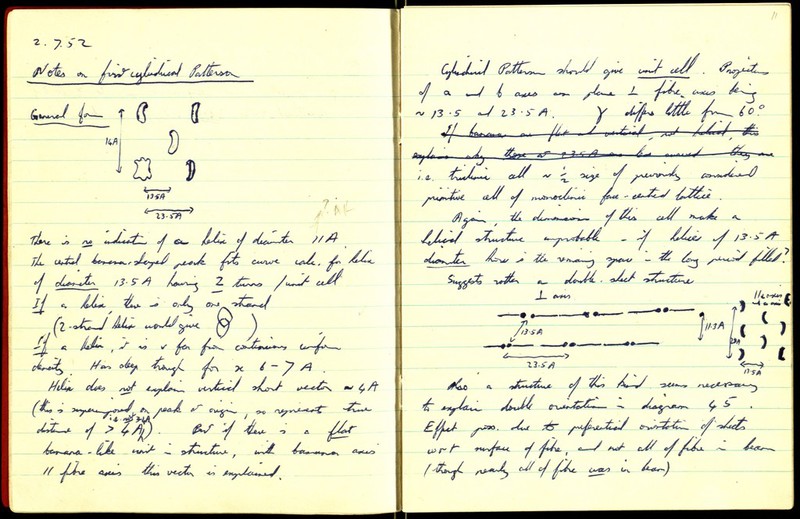 2.7.52
Notes on first cylindrical Patterson
General form
14A
13.5A
23.5A
There is no indication of a helix of diameter 11A.
The central banana-shaped peak fits curve calc. for helix
of diameter 13.5A having 2 turns / unit cell
If a helix, there is only one strand
(2-strand helix would give )
If a helix, it is v far from continuous uniform
density. Has deep trough for x 6-7A.
Helix does not explain vertical short vector ~ 4A
(this is superimposed on peak at origin, so represents true
distance of > 4A). But if there is a flat
banana-like unit in structure, with banana axis
11 fibre axis this vector is explained.
11
Cylindrical Patterson should give unit cell. Projection
of a and b axes on plane ⊥ fibre axis being
~ 13.5 and 23.5A. γ differs little from 60°
If bananas are flat and vertical, not helical, this
explains why those at 23.5A are less curved they are
i.e. triclinic cell ~ ½ size of previously considered
primitive cell of monoclinic face-centred lattice.
Again, the dimensions of this cell make a
helical structure improbable - if helices of 13.5A
diameter how is the remaining space in the long period filled?
Suggests rather a double-sheet structure
⊥ axis
13.5A
23.5A
11.3A
11 axis
13.5A
Also a structure of this kind seems necessary
to explain double orientation in diagram 45.
Effect poss. due to preferential orientation of sheets
w.r.t surface of fibre, and not all of fibre in beam
(though nearly all of fibre was in beam)